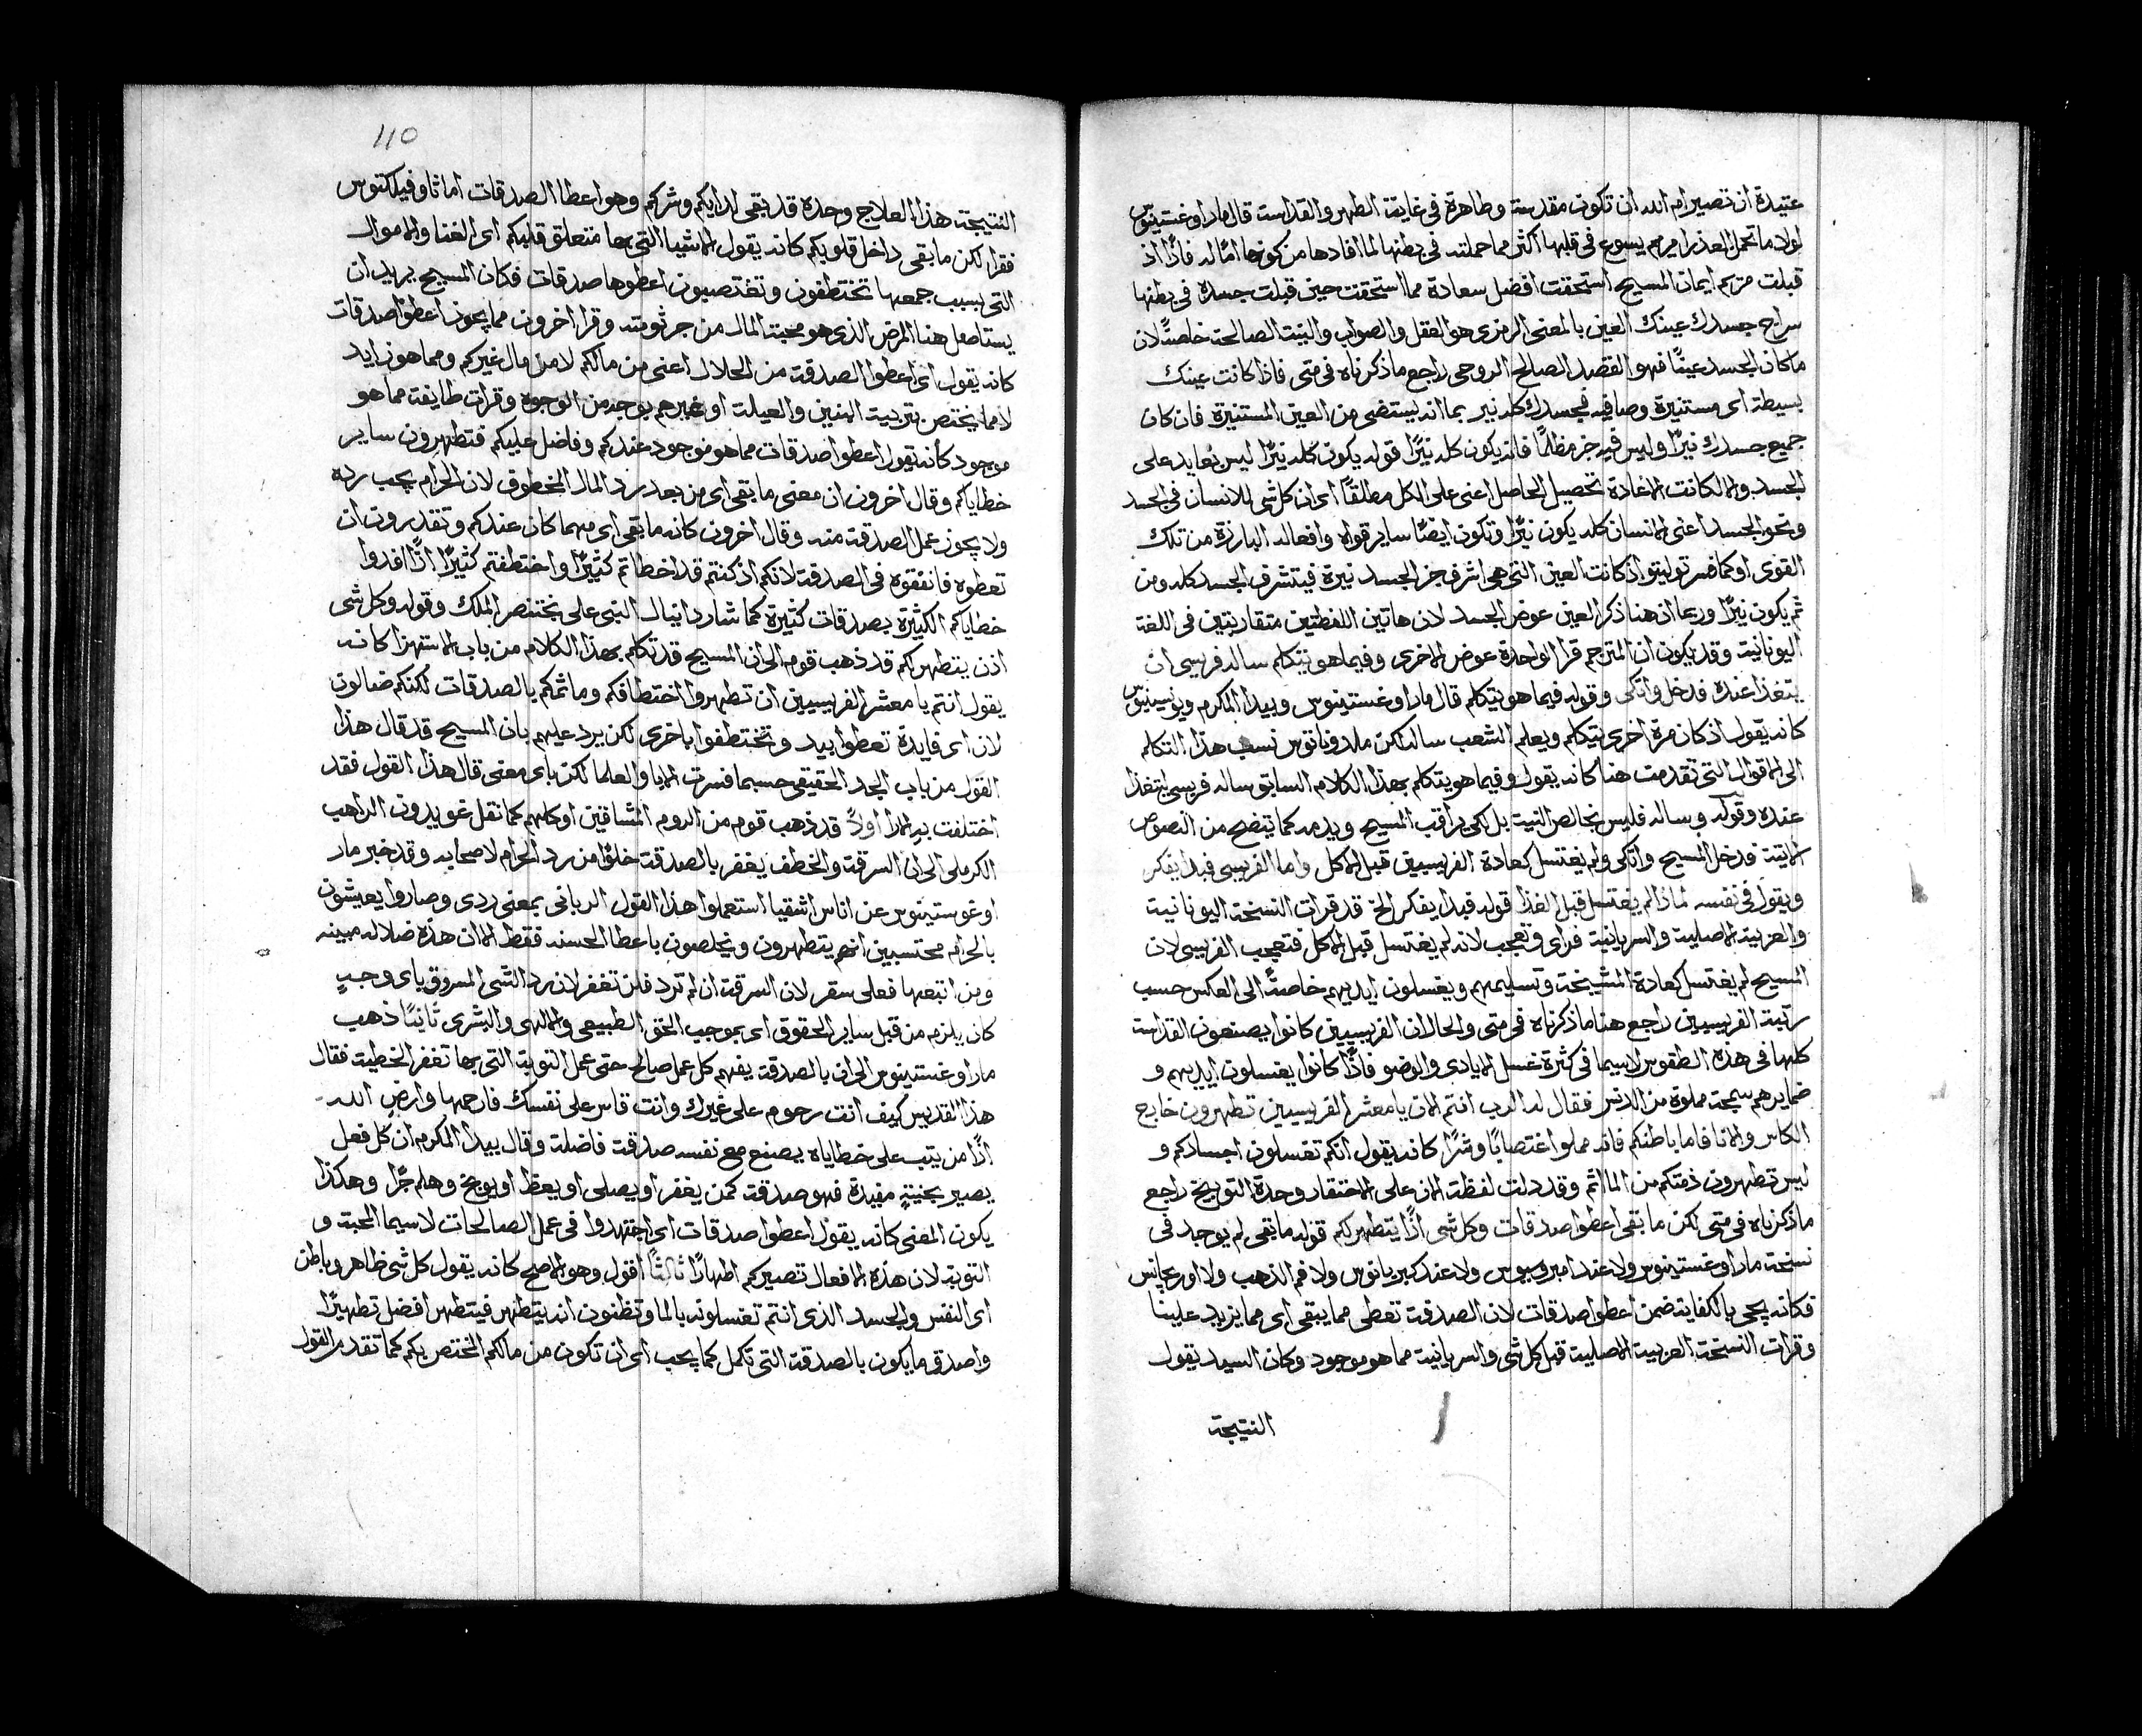 عتيدة ان تصير ام الله ان تكون مقدسة وطاهرة في غاية الطهر والقداسة قال مار اوغستينوس
لولا ما تحمل العذرا مريم يسوع في قلبها اكثر مما حملته في بطنها لما افادها من كونها امًا له فاذًا اذ
قبلت مريم ايمان المسيح استحقت افضل سعادة مما استحقت حين قبلت جسده في بطنها
سراج جسدك عينك العين بالمعنى الرمزي هو العقل والصواب والنية الصالحة خاصةً لان
ما كان الجسد عينًا فهو القصد الصالح الروحي راجع ما ذكرناه في متى فاذا كانت عينك
بسيطة اي مستنيرة وصافيه فجسدك كله نير بما انه يستضي من العين المستنيرة فان كان
جميع جسدك نيرًا وليس فيه جز مظلمًا فانه يكون كله نيرًا قوله يكون كله نيرًا ليس بعايد على
الجسد والا لكانت الاعادة تحصيل الحاصل اعني على الكل مطلقًا اي ان كل شي للانسان في الجسد
ونحو الجسد اعني الانسان كله يكون نيرًا وتكون ايضًا ساير قواه وافعاله البارزة من تلك
القوى او كما فسر توليتو اذ كانت العين التي هي اشرف جز الجسد نيرة فيتشرف الجسد كله ومن
ثم يكون نيرًا وربما ان هنا ذكر العين عوض الجسد لان هاتين اللفظتين متقاربتين في اللغة
اليونانية وقد يكون ان المترجم قرا الواحدة عوض الاخرى وفيما هو يتكلم ساله فريسي ان
يتغذا عنده فدخل واتكى وقوله فيما هو يتكلم قال مار اوغستينوس وبيدا المكرم ويوسينوس
كانه يقول اذ كان مرة اخرى يتكلم ويعلم الشعب ساله لكن ملدوناتوس نسب هذا التكلم
الى الاقوال التي تقدمت هنا كانه يقول وفيما هو يتكلم بهذا الكلام السابق ساله فريسي ليتغذا
عنده وقوله وساله فليس بخالص النية بل لكي يراقب المسيح ويذمه كما يتضح من النصوص
الاتية فدخل المسيح واتكى ولم يغتسل كعادة الفريسيين قبل الاكل واما الفريسي فبدا يفكر
ويقول في نفسه لماذا لم يغتسل قبل الغذا قوله فبدا يفكر الخ قد قرات النسخة اليونانية
والعربية الاصلية والسريانية فراى وتعجب لانه لم يغتسل قبل الاكل فتعجب الفريسي لان
المسيح لم يغتسل كعادة المشيخة وتسليمهم ويغسلون ايديهم خاصةً الى العكس حسب
رتبة الفريسيين راجع هنا ما ذكرناه في متى والحال ان الفريسيين كانوا يصنعون القداسة
كلها في هذه الطقوس لاسيما في كثرة غسل الايادي والوضو فاذًا كانوا يغسلون ايديهم و
ضمايرهم سمجة مملوة من الدنس فقال له الرب انتم الان يا معشر الفريسيين تطهرون خارج
الكاس والانا فاما باطنكم فانه مملوا اغتصابًا وشرًا كانه يقول انكم تغسلون اجسادكم و
ليس تطهرون ذمتكم من الماثم وقد دلت لفظة الان على الاحتقار وحدة التوبيخ راجع
ما ذكرناه في متى لكن ما بقى اعطوا صدقات وكل شي اذًا يتطهر لكم قوله ما بقى لم يوجد في
نسخة مار اوغستينوس ولا عند امبروسيوس ولا عند كبريانوس ولا فم الذهب ولا اوريجانس
فكانه يحي بالكفاية ضمن اعطوا صدقات لان الصدقة تعطى مما يبقى اي مما يزيد علينا
وقرات النسخة العربية الاصلية قبل كل شي والسريانية مما هو موجود وكان السيد يقول
النتيجة
110
النتيجة هذا العلاج وحده قد بقى لدايكم وشركم وهو اعطا الصدقات اما ثاوفيلكتوس
فقرا لكن ما بقى داخل قلوبكم كانه يقول الاشيا التي بها متعلق قلبكم اي الغنا والاموال
التي بسبب جمعها تختطفون وتغتصبون اعطوها صدقات فكان المسيح يريد ان
يستاصل هنا المرض الذي هو محبة المال من جرثومته وقرا اخرون مما يجوز اعطوا صدقات
كانه يقول اي اعطوا الصدقة من الحلال اعني من مالكم لا من مال غيركم ومما هو زايد
لا مما يختص بتربية البنين والعيلة او غيرهم بوجه من الوجوه وقرات طايفة مما هو
موجود كانه يقول اعطوا صدقات مما هو موجود عندكم وفاضل عليكم فتطهرون ساير
خطاياكم وقال اخرون ان معنى ما بقى اي من بعد رد المال المخطوف لان الحرام يجب رده
ولا يجوز عمل الصدقة منه وقال اخرون كانه ما بقى اي مهما كان عندكم وتقدرون ان
تعطوه فانفقوه في الصدقة لانكم اذ كنتم قد اخطاتم كثيرًا واختطفتم كثيرًا اذًا افدوا
خطاياكم الكثيرة بصدقات كثيرة كما شار دانيال النبي على بختنصر الملك وقوله وكل شي
اذن يتطهر لكم قد ذهب قوم الى ان المسيح قد تكلم بهذا الكلام من باب الاستهزا كانه
يقول انتم يا معشر الفريسيين ان تطهروا اختطافكم وماثمكم بالصدقات لكنكم ضالون
لان اي فايدة تعطوا بيد وتختطفوا باخرى لكن يرد عليهم بان المسيح قد قال هذا
القول من باب الجد الحقيقي حسبما فسرت الابا والعلما لكن باي معنى قال هذا القول فقد
اختلفت به الارا اولاً قد ذهب قوم من الروم المشاقين او كلهم كما نقل غويدون الراهب
الكرملي الى ان السرقة والخطف يغفر بالصدقة خلوًا من رد الحرام لاصحابه وقد خبر مار
اوغوستينوس عن اناس اشقيا استعملوا هذا القول الرباني بمعنى ردي وصاروا يعيشون
بالحرام محتسبين انهم يتطهرون ويخلصون باعطا الحسنه فقط الا ان هذه ضلاله مبينه
ومن اتبعها فعلى سقر لان السرقة ان لم ترد فلن تغفر لان رد الشي المسروق باي وجهٍ
كان يلزم من قبل ساير الحقوق اي بموجب الحق الطبيعي والالهي والبشري ثانيًا ذهب
مار اوغستينوس الى ان بالصدقة يفهم كل عمل صالح حتى عمل التوبة التي بها تغفر الخطية فقال
هذا القديس كيف انت رحوم على غيرك وانت قاس على نفسك فارحمها وارض الله
اذًا من يتب على خطاياه يصنع مع نفسه صدقة فاضلة وقال بيدا المكرم ان كل فعل
يصير بحنيةٍ مفيدة فهو صدقة كمن يغفر او يصلي او يعظ او يوبخ وهلم جرًا وهكذا
يكون المعنى كانه يقول اعطوا صدقات اي اجتهدوا في عمل الصالحات لاسيما المحبة و
التوبة لان هذه الافعال تصيركم اطهارًا ثالثًا اقول وهو الاصح كانه يقول كل شي ظاهر وباطن
اي النفس والجسد الذي انتم تغسلونه بالما وتظنون انه يتطهر فيتطهر افضل تطهيرًا
واصدق ما يكون بالصدقة التي تكمل كما يجب اي ان تكون من مالكم المختص بكم كما تقدم القول